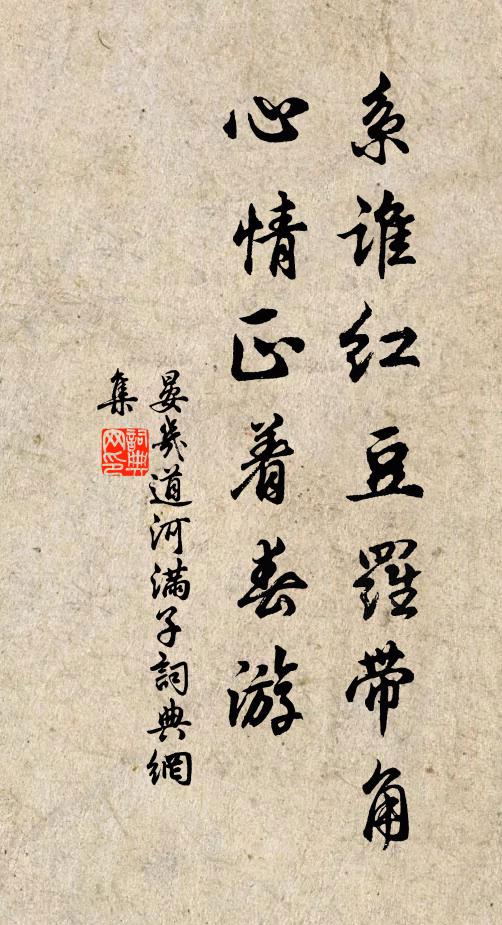 系谁红豆羅带角
心情正着春游
晏幾道河满子詞典網
集
詞典
网印